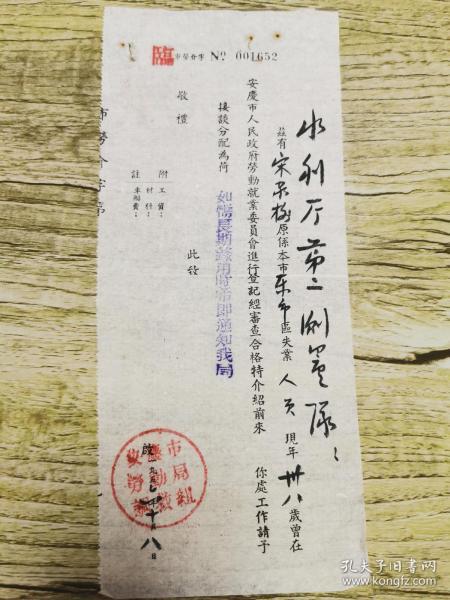 臨 市勞介字 № 001652
水利厅第二測量隊：
茲有宋子樹原係本市東市區失業人員現年卅八歲曾在
安慶市人民政府勞動就業委員會進行登記經審查合格特介紹前來 你處工作請予
接談分配為荷
此致
敬禮
如需長期錄用時希即通知我局
附
註
工資：
材料：
車船費：
啟
十 八日
市勞介字第
孔夫子旧书网
www.kongfz.com